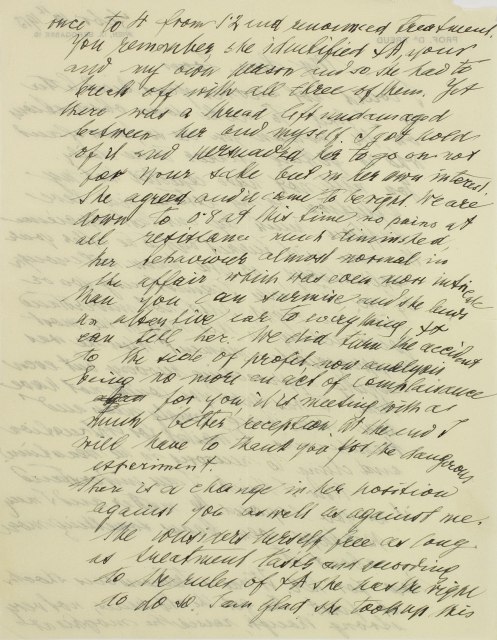 once to 4 from 1·2 and renounced treatment.
You remember she identified ΨA, your
and my own person and so she had to
break off with all three of them. Yet
there was a thread left undamaged
between her and myself. I got hold
of it and persuaded her to go on not
for your sake but in her own interest.
She agreed and it came to be right. We are
down to 0·8 at this time no pains at
all resistance much diminished,
her behaviour almost normal in
the affair which was even more
than you can surmise and she lends
an attentive ear to everything ΨA
can tell her. We did turn the accident
to the side of profit, now analysis
being no more an act of complaisance
for you it is meeting with a
much better reception. At the end I
will have to thank you for the dangerous
experiment.
There is a change in her position
against you as well as against me.
She considers herself free as long
as treatment lasts and according
to the rules of ΨA she has the right
to do so. I am glad she took up this